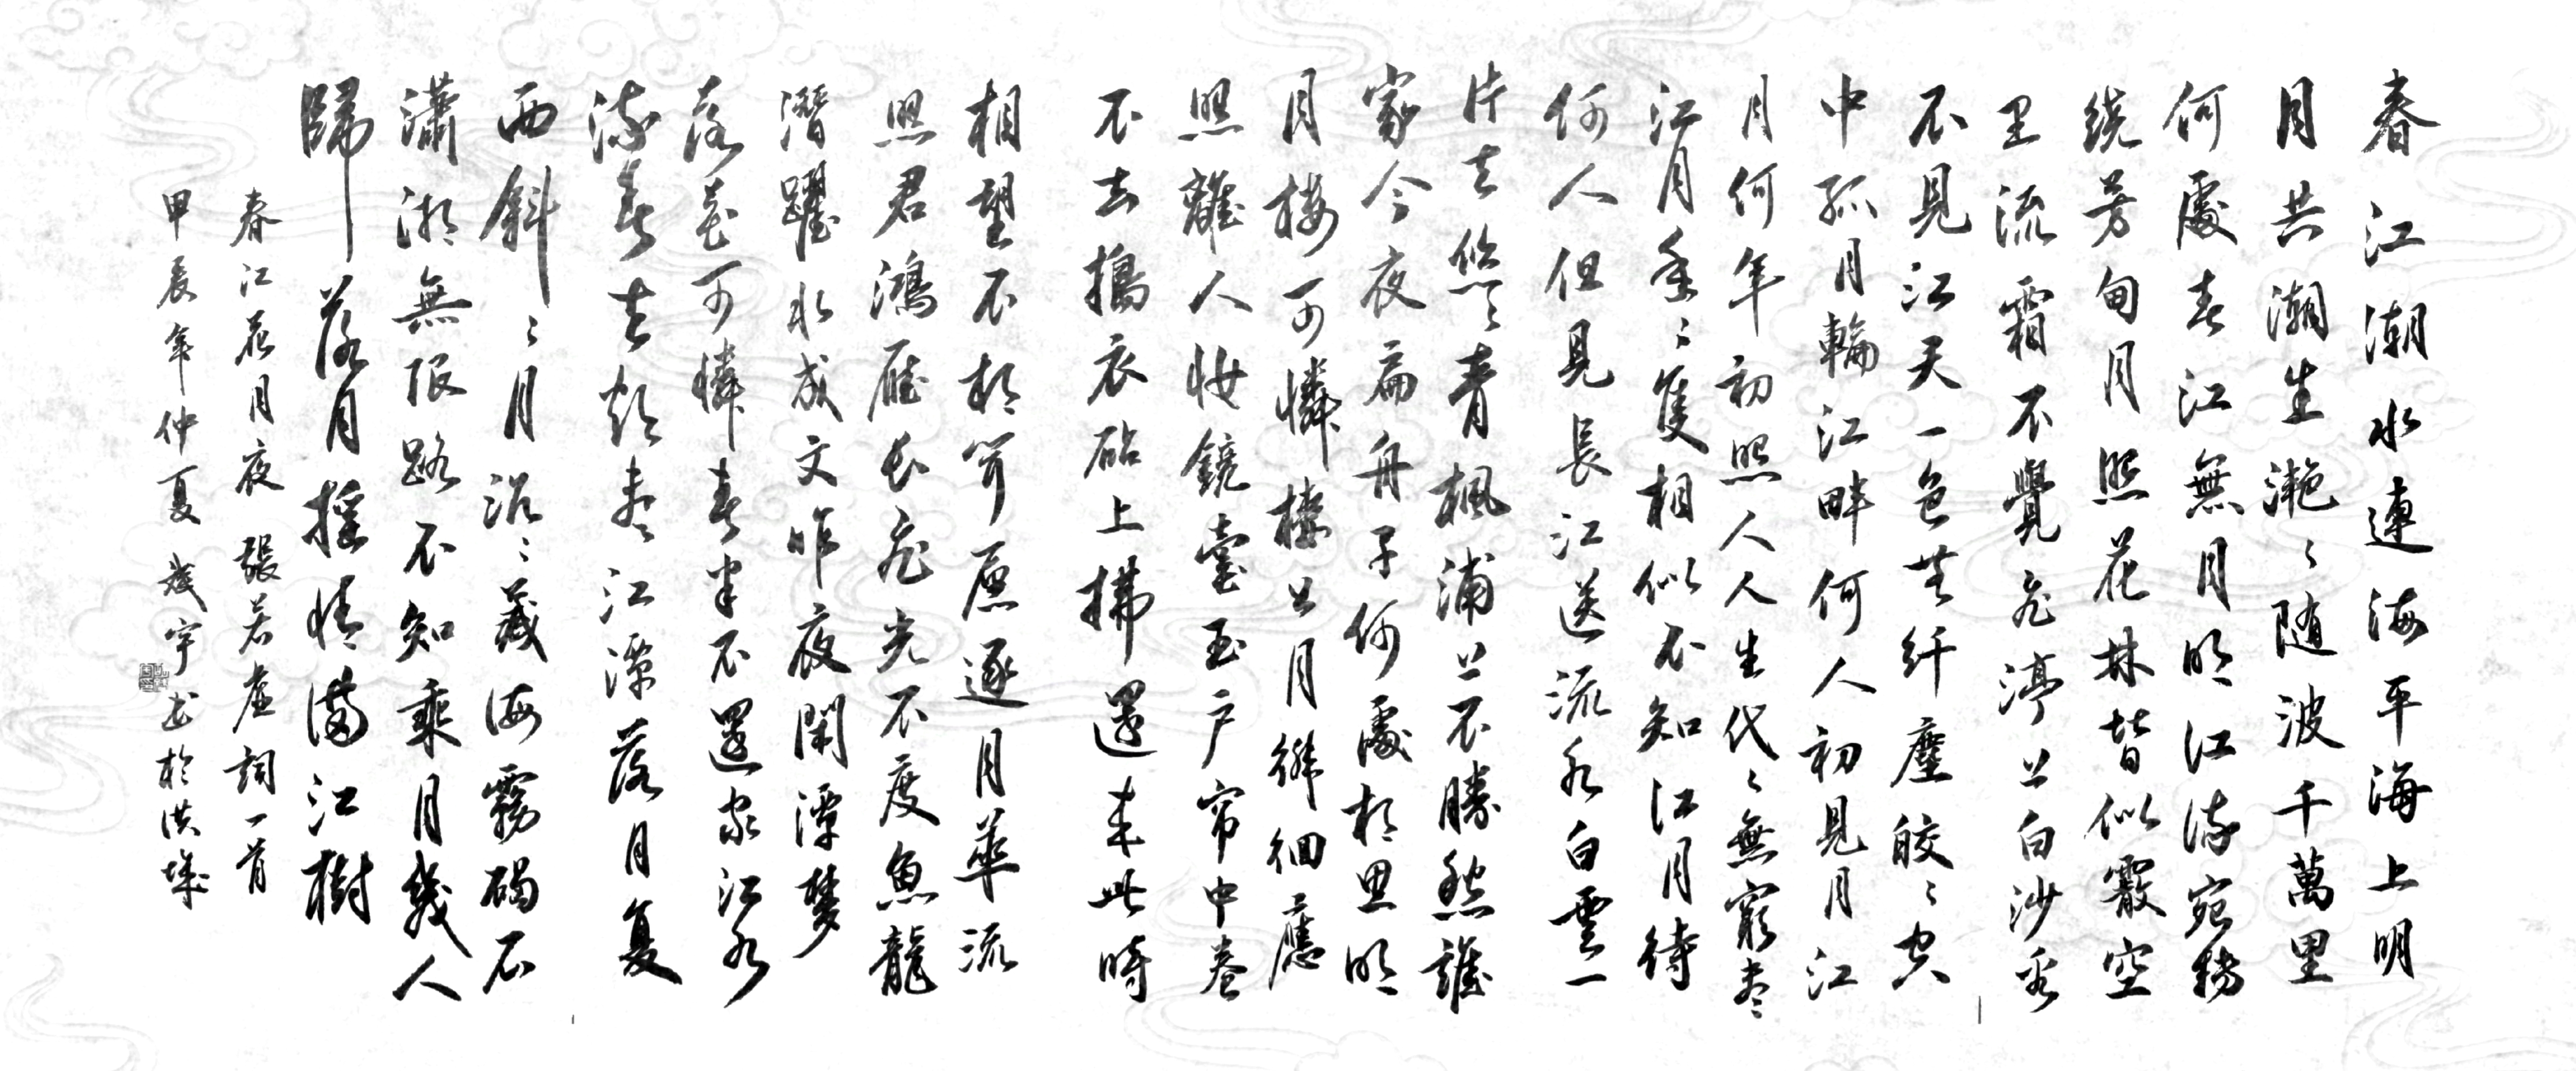 春江潮水連海平海上明
月共潮生灔〻随波千萬里
何處春江無月明江流宛轉
繞芳甸月照花林皆似霰空
里流霜不覺飛渟上白沙看
不見江天一色無纤塵皎〻空
中孤月輪江畔何人初見月江
月何年初照人人生代〻無窮盡
江月年〻隻相似不知江月待
何人但見長江送流水白雲一
片去悠〻青楓浦上不勝愁誰
家今夜扁舟子何處相思明
月樓可憐樓上月徘徊應
照離人妝鏡臺玉户帘中卷
不去搗衣砧上拂還来此時
相望不相聞愿逐月華流
照君鴻雁長飛光不度魚龍
潛躍水成文昨夜閑潭夢
落花可憐春半不還家江水
流春去欲盡江潭落月复
西斜〻月沉〻藏海霧碣石
瀟湘無限路不知乘月幾人
歸落月摇情滿江樹
春江花月夜 張若虛詞一首
甲辰年仲夏 宇书於洪城